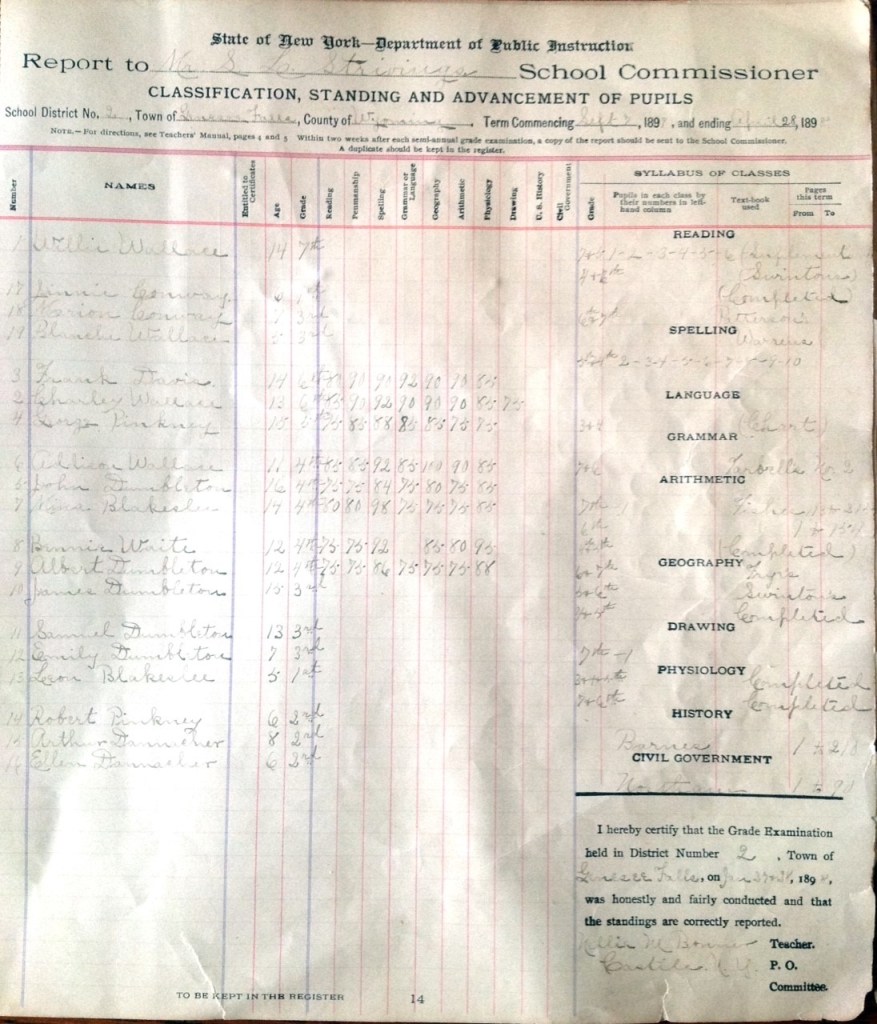 State of New York—Department of Public Instruction
Report to Mr S. L. Strivings School Commissioner
CLASSIFICATION, STANDING AND ADVANCEMENT OF PUPILS
School District No. 2, Town of Genesee Falls, County of Wyoming, Term Commencing Sept 7, 189 , and ending April 28, 189
NOTE.—For directions, see Teachers' Manual, pages 4 and 5 Within two weeks after each semi-annual grade examination, a copy of the report should be sent to the School Commissioner.
A duplicate should be kept in the register.
Number NAMES Entitled to Certificates Age Grade Reading Penmanship Spelling Grammar or Language Geography Arithmetic Physiology Drawing U. S. History Civil Government
1 Willie Wallace 14 7th
17 Conway 1st
18 Conway 7 3rd
19 Blanche Wallace 5 3rd
3 Frank Davis 14 6th 80 90 90 92 90 90 85
2 Charley Wallace 13 6th 85 90 92 90 90 90 85 75
4 Pinkney 15 5th 75 85 88 85 85 75 75
6 Addison Wallace 11 4th 85 85 92 85 100 90 85
5 John Dumbleton 16 4th 75 75 84 75 80 75 85
7 Blakeslee 14 4th 80 80 98 75 75 75 85
8 Binnie Waite 12 4th 75 75 92 85 80 95
9 Albert Dumbleton 12 4th 75 75 86 75 75 75 88
10 James Dumbleton 15 3rd
11 Samuel Dumbleton 13 3rd
12 Emily Dumbleton 7 3rd
13 Leon Blakeslee 5 1st
14 Robert Pinkney 6 2nd
15 Arthur Dannacher 8 2nd
16 Ellen Dannacher 6 2nd
SYLLABUS OF CLASSES
Grade Pupils in each class by their numbers in left-hand column Text-book used Pages this term From To
READING
1-2-3-4-5-6
(Swintons)
(Completed)
6th 7th Patterson's
SPELLING
Warrens
2-3-4-5-6-7-8-9-10
LANGUAGE
(Chart)
GRAMMAR
Tarbells No. 2
ARITHMETIC
7th 1
6th 1
(Completed)
GEOGRAPHY
Frye's
Swintons
Completed
DRAWING
7th -1
PHYSIOLOGY
Completed
Completed
HISTORY
Barnes 1 to 218
CIVIL GOVERNMENT
Northam 1 to 91
I hereby certify that the Grade Examination
held in District Number 2 , Town of
Genesee Falls, on Jan 27 28, 189 ,
was honestly and fairly conducted and that
the standings are correctly reported.
Nellie M Bonner Teacher.
Castile N.Y. P. O.
Committee.
TO BE KEPT IN THE REGISTER 14